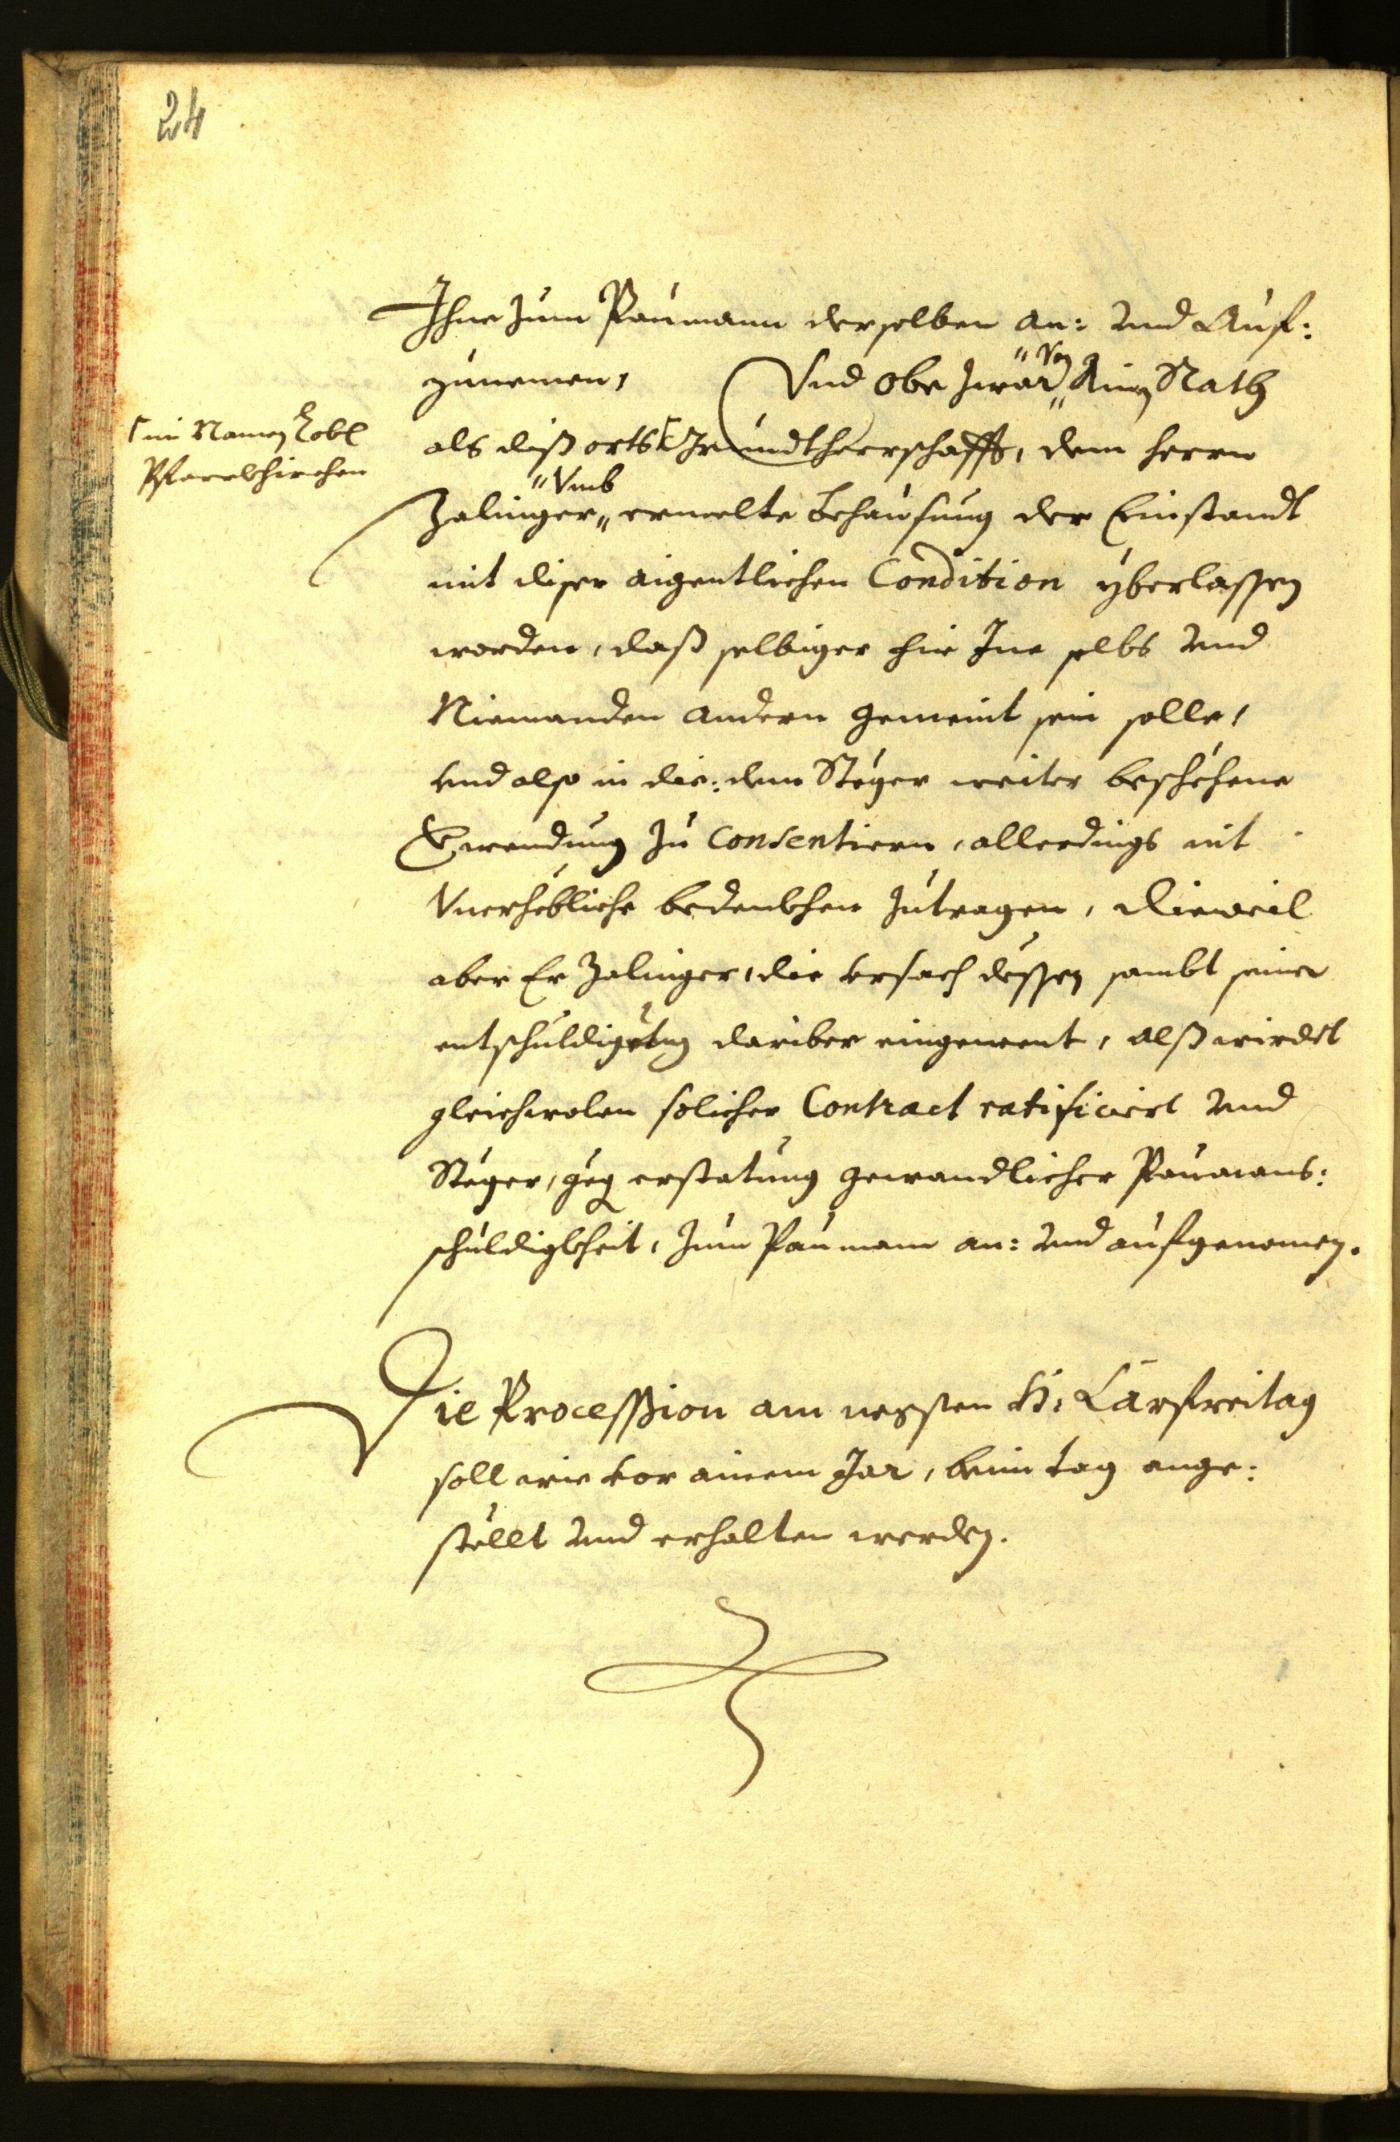 24
Ihne zum Paumann derselben an: und Auf:
zunemen,
Und obe zwar " Von " Ainen Rath
im Namen Lobl
Pfarrkhirchen
als diß orts Grundtherrschafft, dem herrn
Zalinger " Vmb " ermelte Behausung der Einstandt
mit diser aigentlichen Condition yberlassen
worden, daß selbiger fir Ine selbs und
Niemanden andern gemeint sein solle,
und also in die: dem Steger weiter beschehene
wendung zu Consentiern, allerdings nit
Vnerhebliche bedenkhen zutragen, Dieweil
aber Er Zalinger, die ursach dessen sambt seiner
entschuldigung dariber eingewent, alß wirdt
gleichwolen solicher Contract ratificiert und
Steger, gegen erstatung gewondlicher Paumans:
schuldigkheit, zum Paumann an: und aufgenomen.
Die Procession am negsten H: Carfreitag
soll wie vor ainem Jar, beim tag ange:
stellt und erhalten werden.